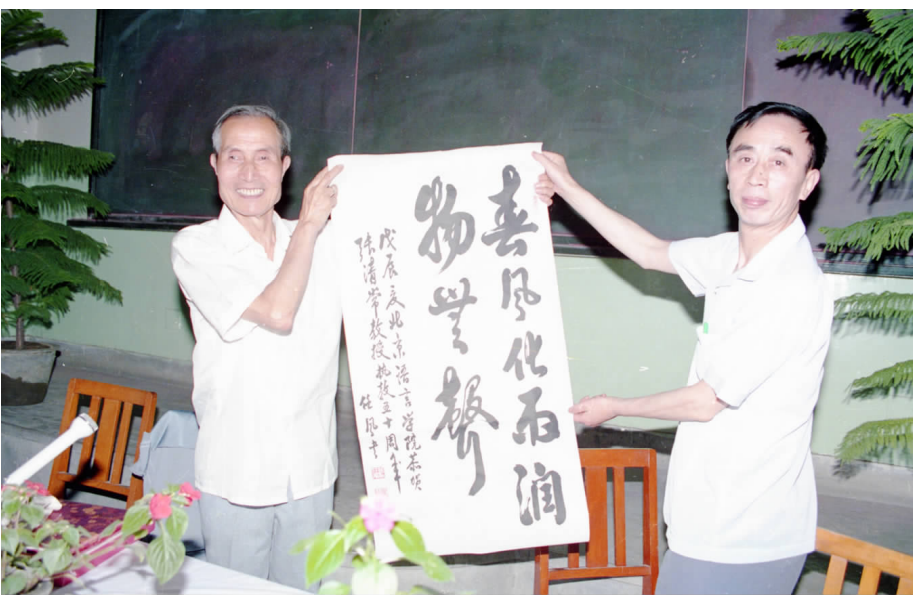 春风化雨润
物无声
戊辰夏北京语言学院恭颂
张清常教授执教五十周年
任风书